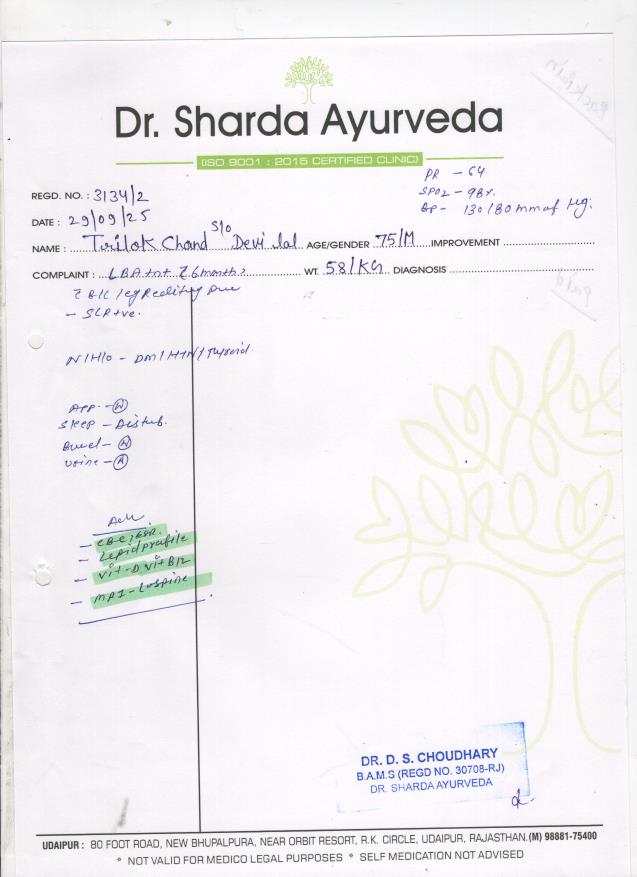 Dr. Sharda Ayurveda
(ISO 9001 : 2015 CERTIFIED CLINIC)
PR - 64
SPO2 - 98%.
BP - 130/80 mm of Hg.
REGD. NO. : 3134/2
DATE : 29/09/25
NAME : Trilok Chand S/o Devi lal AGE/GENDER 75/M IMPROVEMENT
COMPLAINT : LBA WT. 58/KG DIAGNOSIS
- SLR+ve.
N/H/O - DM/HTN/Thyroid.
APP. - N
Sleep - Disturb.
Bowel - N
Urine - N
Adv
- CBC/ESR.
- Lipid profile
- Vit-D Vit B12
- MRI - L-spine
DR. D. S. CHOUDHARY
B.A.M.S (REGD NO. 30708-RJ)
DR. SHARDA AYURVEDA
UDAIPUR : 80 FOOT ROAD, NEW BHUPALPURA, NEAR ORBIT RESORT, R.K. CIRCLE, UDAIPUR, RAJASTHAN. (M) 98881-75400
* NOT VALID FOR MEDICO LEGAL PURPOSES * SELF MEDICATION NOT ADVISED